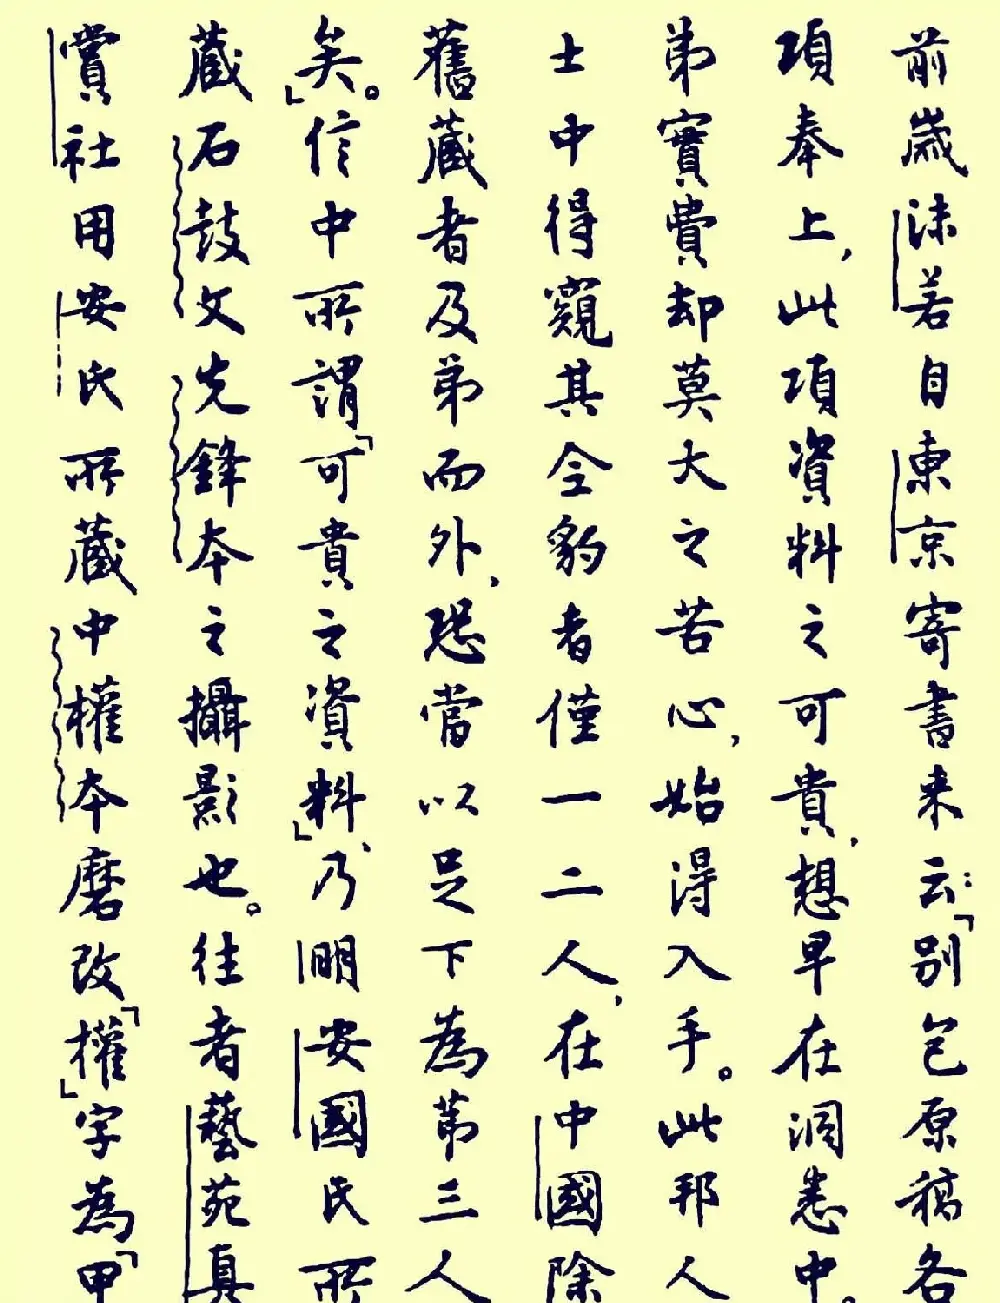 前歲沫若自東京寄書来云：「别包原稿各
項奉上，此項資料之可貴，想早在洞悉中。
弟實費却莫大之苦心，始得入手。此邦人
士中得窺其全豹者僅一二人，在中國除
舊藏者及弟而外，恐當以足下為第三人
矣。」信中所謂「可貴之資料」、乃明安國氏所
藏石鼓文先鋒本之攝影也。往者藝苑真
賞社用安氏所藏中權本磨改「權」字為「甲